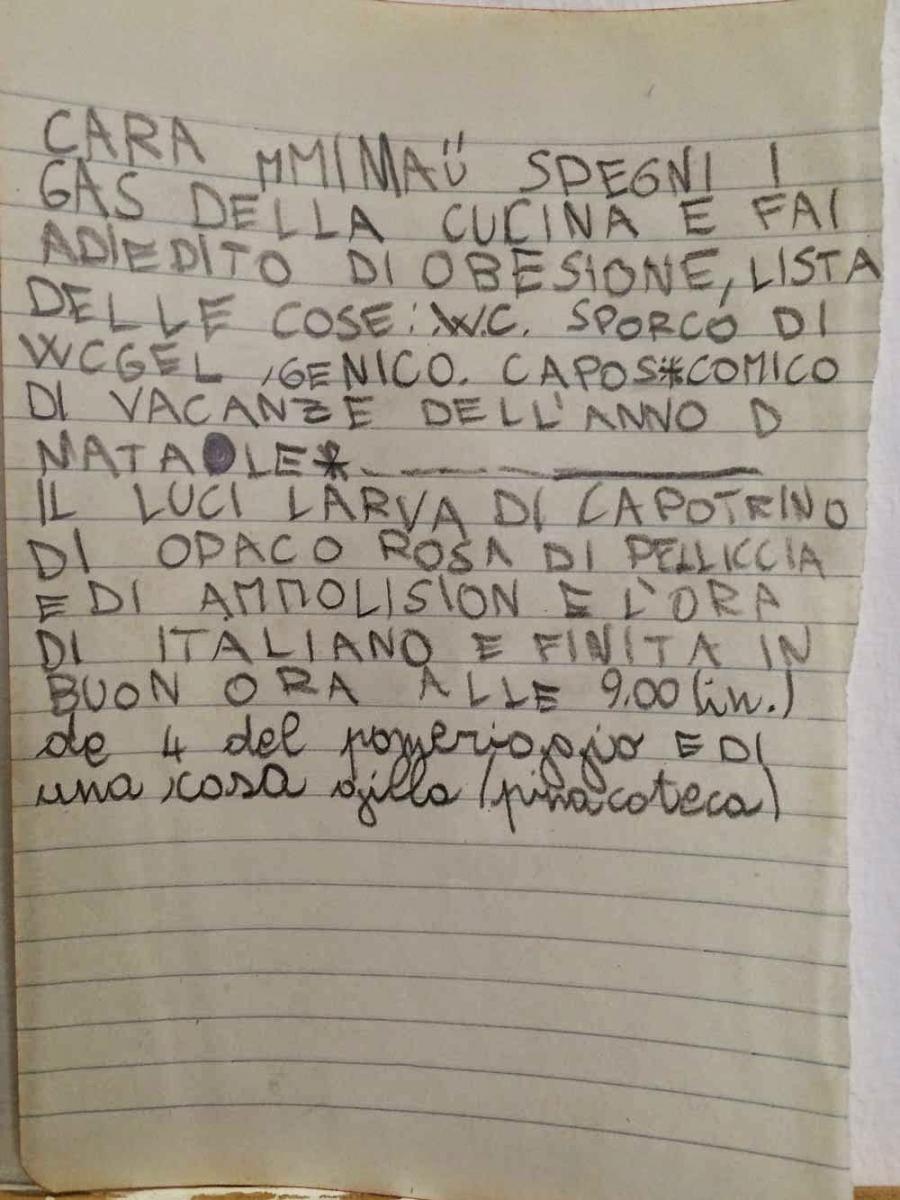 CARA MMIMAÜ SPEGNI I
GAS DELLA CUCINA E FAI
ADIEDITO DI OBESIONE, LISTA
DELLE COSE: W.C. SPORCO DI
WCGEL IGENICO. CAPOS*COMICO
DI VACANZE DELL'ANNO D
NATALE*
IL LUCI LARVA DI CAPOTRINO
DI OPACO ROSA DI PELLICCIA
E DI AMMOLISION E L'ORA
DI ITALIANO E FINITA IN
BUON ORA ALLE 9.00 (in.)
de 4 del pozzerioggio E DI
una cosa (pinacoteca)